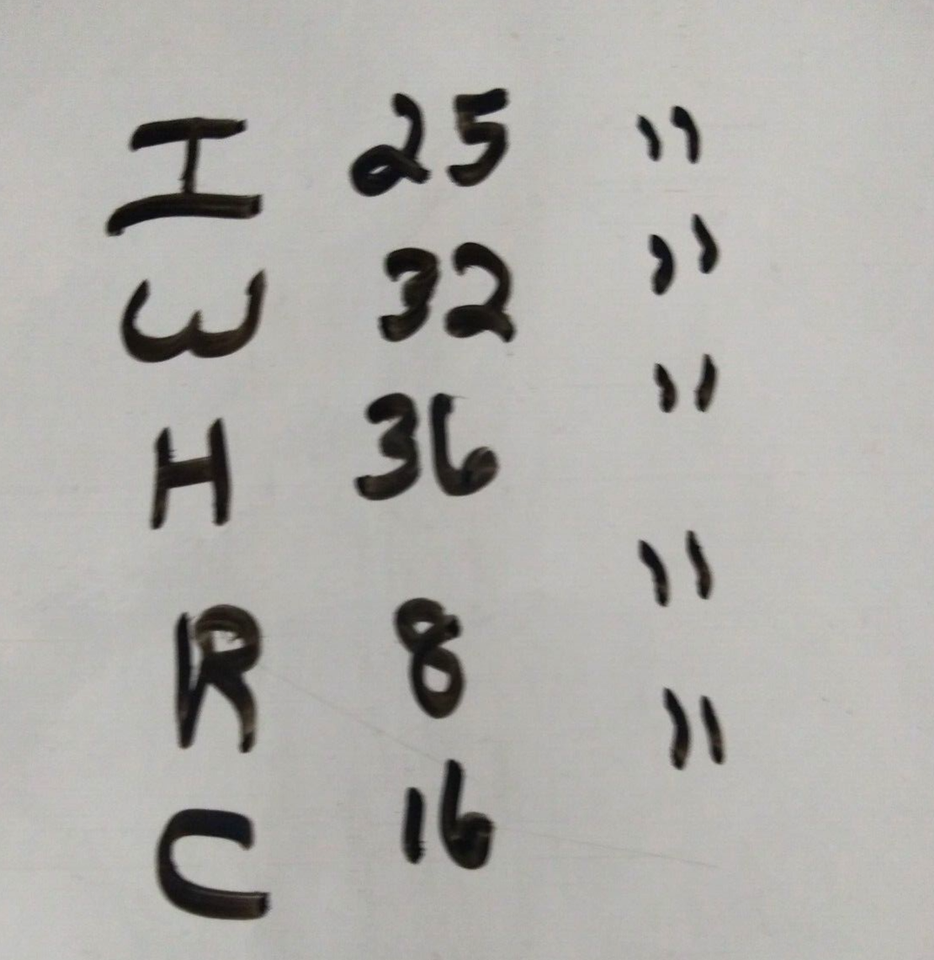 I 25 "
W 32 "
H 36 "
R 8 "
C 16 "